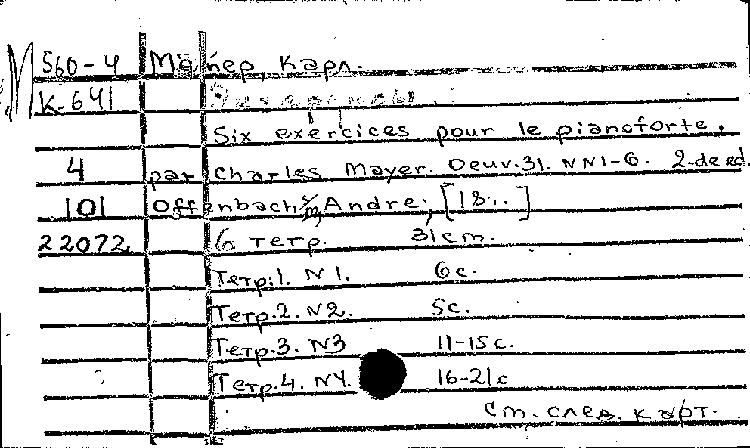 М 560-4 Майер, Карл.
К-641
Six exercices pour le pianoforte,
4 par Charles Mayer. Oeuv. 31. NN1-6. 2-de ed.
101 Offenbach s/m, Andre, [18..]
22072 6 тетр. 31 cm.
Тетр. 1. N1. 6 с.
Тетр. 2. N2. 5с.
Тетр. 3. N3 11-15 с.
Тетр. 4. N4. 16-21с
См. след. карт.